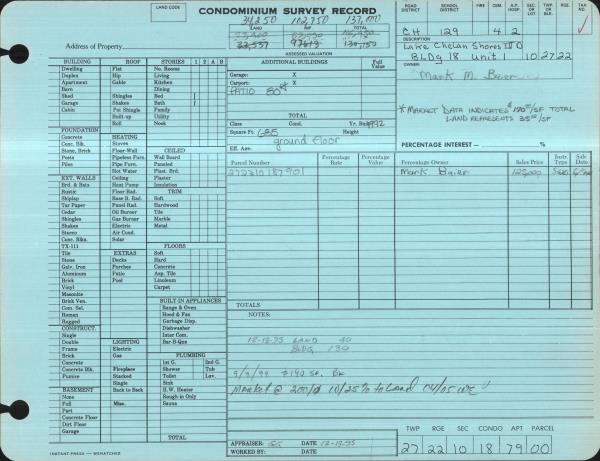 LAND CODE
CONDOMINIUM SURVEY RECORD
34,250 102,750 137,000
LAND IMP. TOTAL
33,557 97613
ASSESSED VALUATION
Address of Property
ROAD DISTRICT SCHOOL DISTRICT FIRE CEM. A.P. HOSP. SEC. OR LOT TWP. OR BLK. RGE. TAX NO.
CH 129 4 2
DESCRIPTION
Lake Chelan Shores III D
BLDg 18 Unit 1 10.27.22
OWNER
Mark M. Baier
* MARKET DATA INDICATED $170/SF TOTAL
LAND REPRESENTS 35/SF
PERCENTAGE INTEREST %
BUILDING ROOF STORIES 1 2 A B
Dwelling Flat No. Rooms
Duplex Hip Living
Apartment Gable Kitchen
Barn Dining
Shed Shingles Bed
Garage Shakes Bath
Cabin Pat Shingle Family
Built-up Utility
Roll Nook
FOUNDATION
Concrete HEATING
Conc. Blk. Stoves
Stone, Brick Floor-Wall CEILED
Posts Pipeless Furn. Wall Board
Piles Pipe Furn. Paneled
Hot Water Plast. Brd.
EXT. WALLS Ceiling Plaster
Brd. & Bats Heat Pump Insulation
Rustic Floor Rad. TRIM
Shiplap Base R. Rad. Soft
Tar Paper Panel Rad. Hardwood
Cedar Oil Burner Tile
Shingles Gas Burner Marble
Shakes Electric Metal
Stucco Air Cond.
Conc. Blks. Solar
TX-111 FLOORS
Tile EXTRAS Soft
Stone Decks Hard
Galv. Iron Porches Concrete
Aluminum Patio Asp. Tile
Brick Pool Linoleum
Vinyl Carpet
Masonite
Brick Ven. BUILT-IN APPLIANCES
Com. Sel. Range & Oven
Roman Hood & Fan
Rugged Garbage Disp.
CONSTRUCT. Dishwasher
Single Inter Com.
Double LIGHTING Bar-B-Que
Frame Electric
Brick Gas PLUMBING
Concrete 1st G. 2nd G.
Concrete Blk. Fireplace Shower Tub
Pumice Stacked Toilet Lav.
Single Sink
BASEMENT Back to Back H.W. Heater
None Rough-in Only
Full Misc. Sauna
Part
Concrete Floor
Dirt Floor
Garage TOTAL
ADDITIONAL BUILDINGS Full Value
Garage: X
Carport: X
PATIO 80#
TOTAL
Class Cond. Yr. Built 1992
Square Ft. 685 Height
ground floor
Eff. Age
Parcel Number Percentage Rate Percentage Value Percentage Owner Sales Price Instr. Type Sale Date
272210187901 Mark Baier
TOTALS
NOTES:
12-12-95 LAND 40
BLDG 130
MARKET @ 200/# 10/25% to Land 04/05
APPRAISER DATE 12-12-95
WORKED BY: DATE
TWP RGE SEC CONDO APT PARCEL
27 22 10 18 79 00
INSTANT PRESS — WENATCHEE